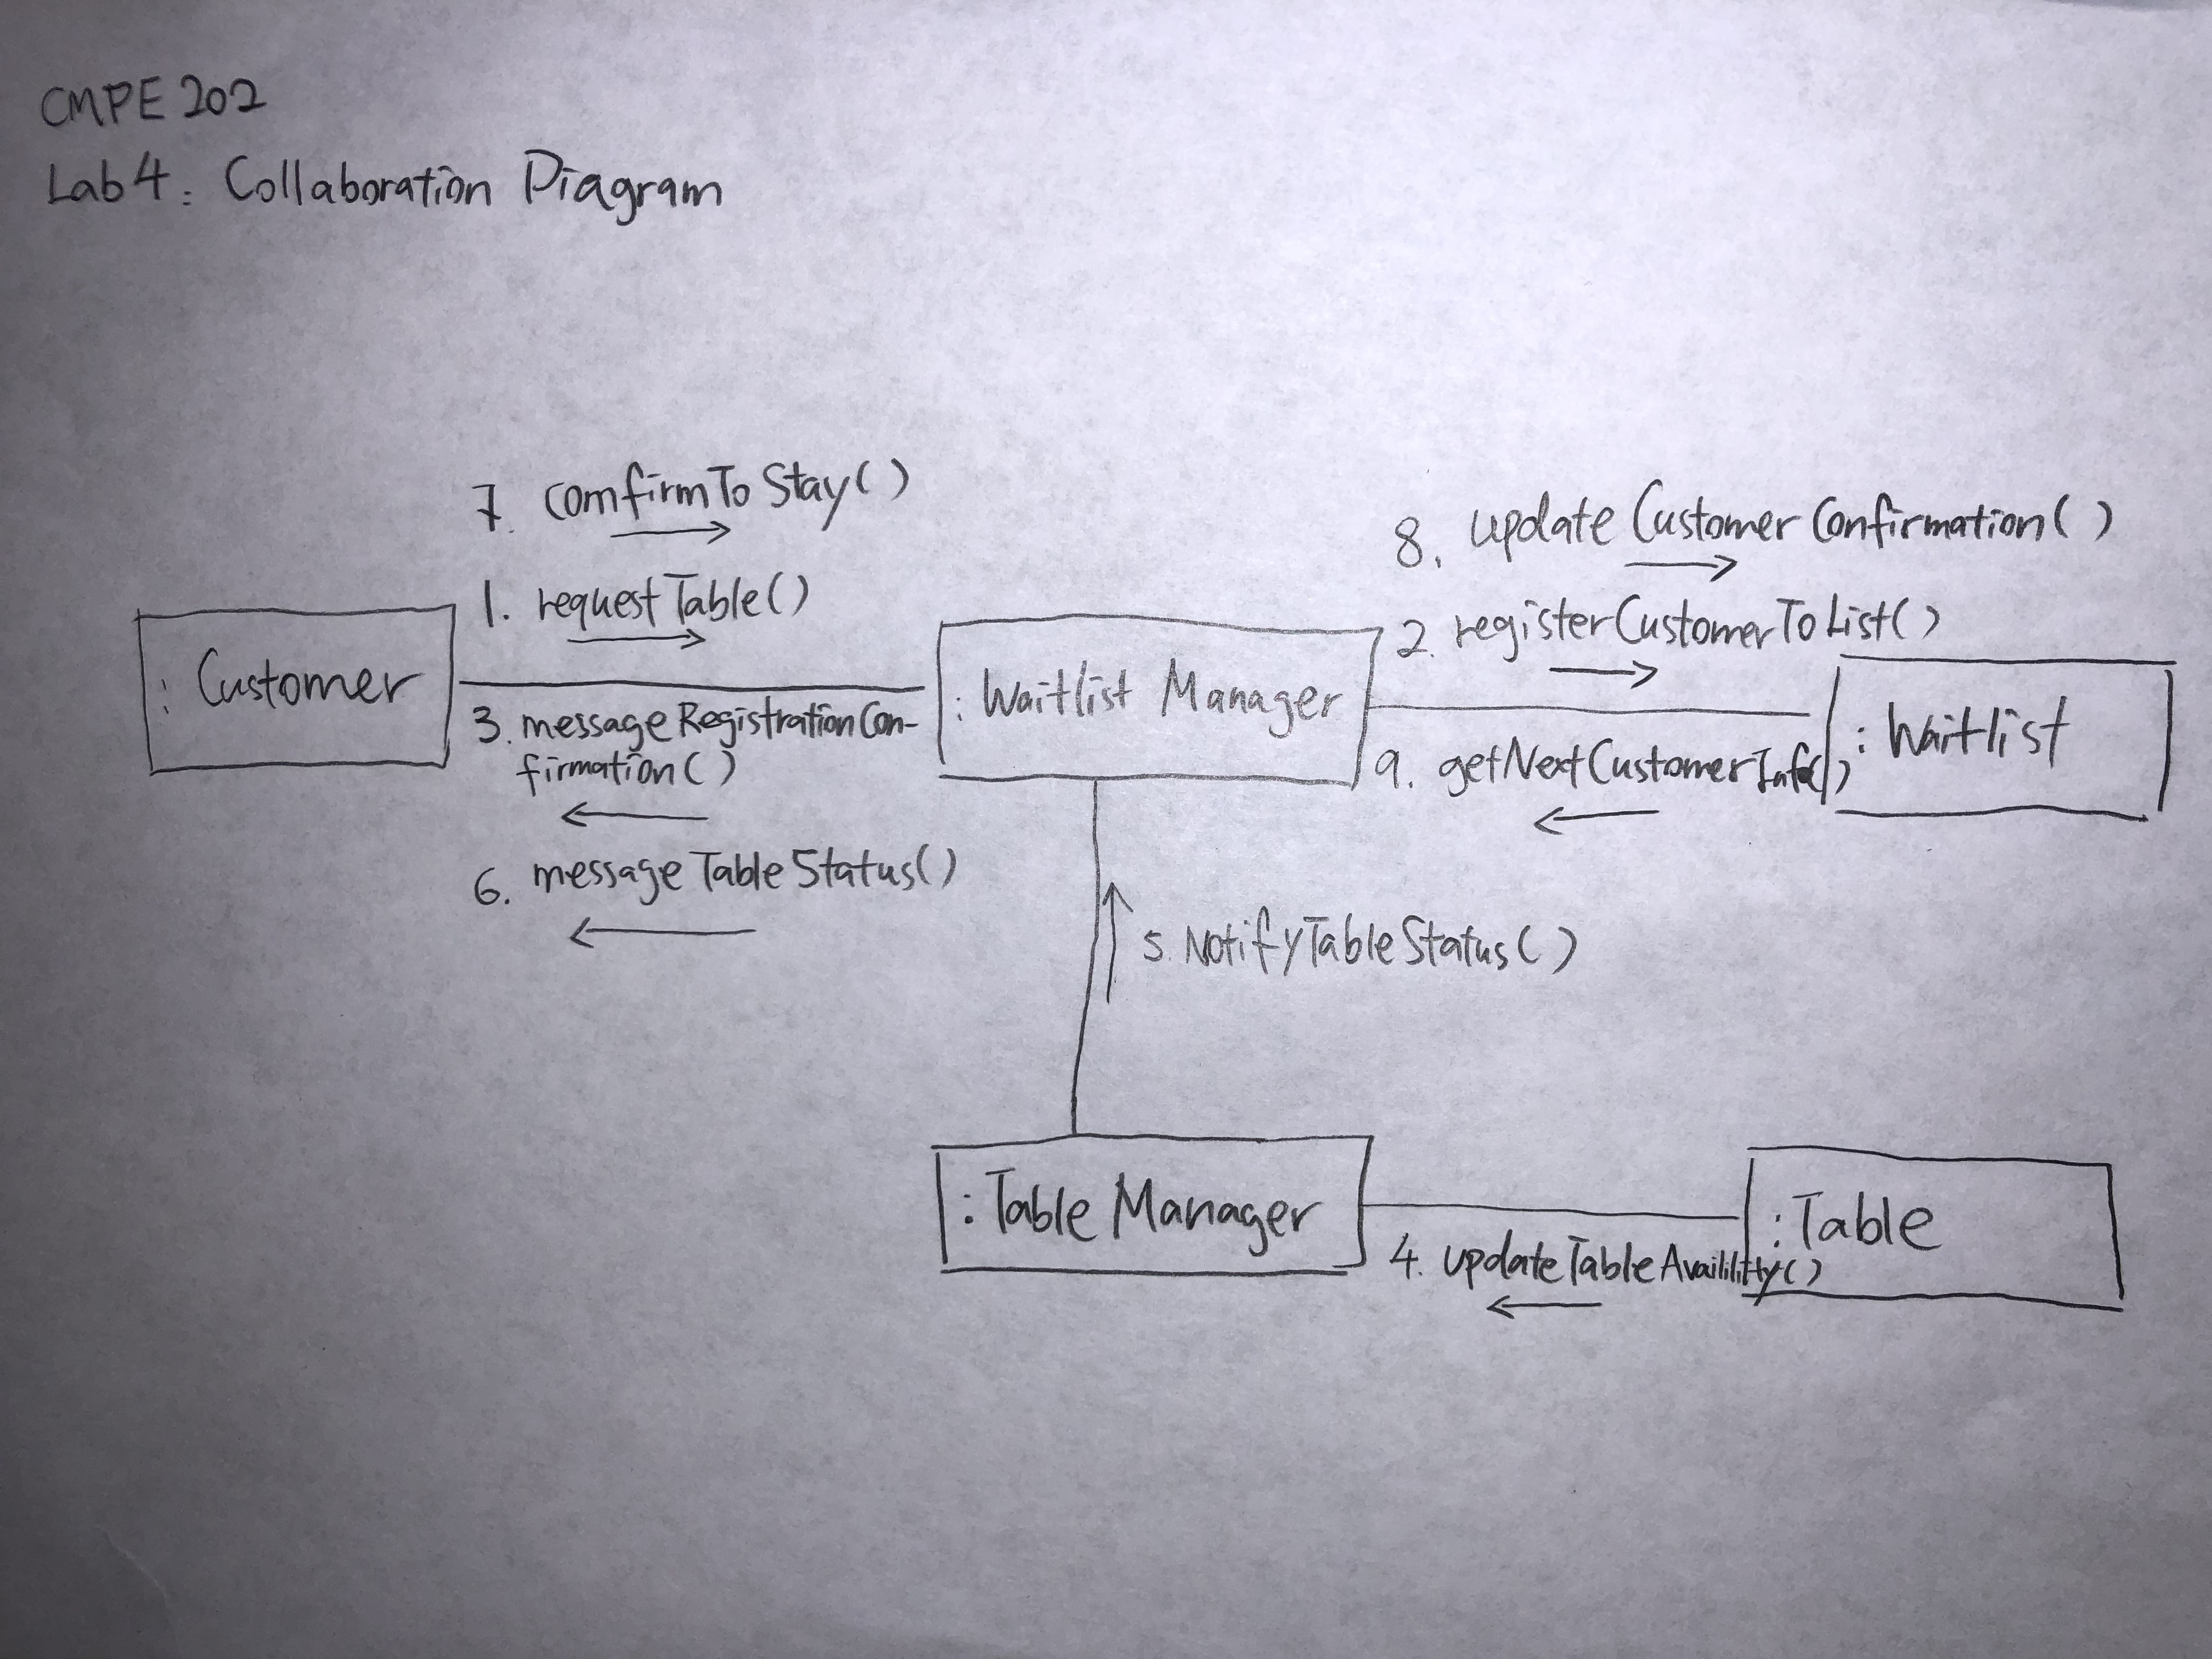 CMPE 202
Lab 4: Collaboration Diagram
7. comfirmToStay()
1. requestTable()
: Customer
3. messageRegistrationCon-
firmation()
6. messageTableStatus()
: Waitlist Manager
8. updateCustomerConfirmation()
2. registerCustomerToList()
: Waitlist
9. getNextCustomerInfo()
5. NotifyTableStatus()
: Table Manager
: Table
4. updateTableAvaililitty()